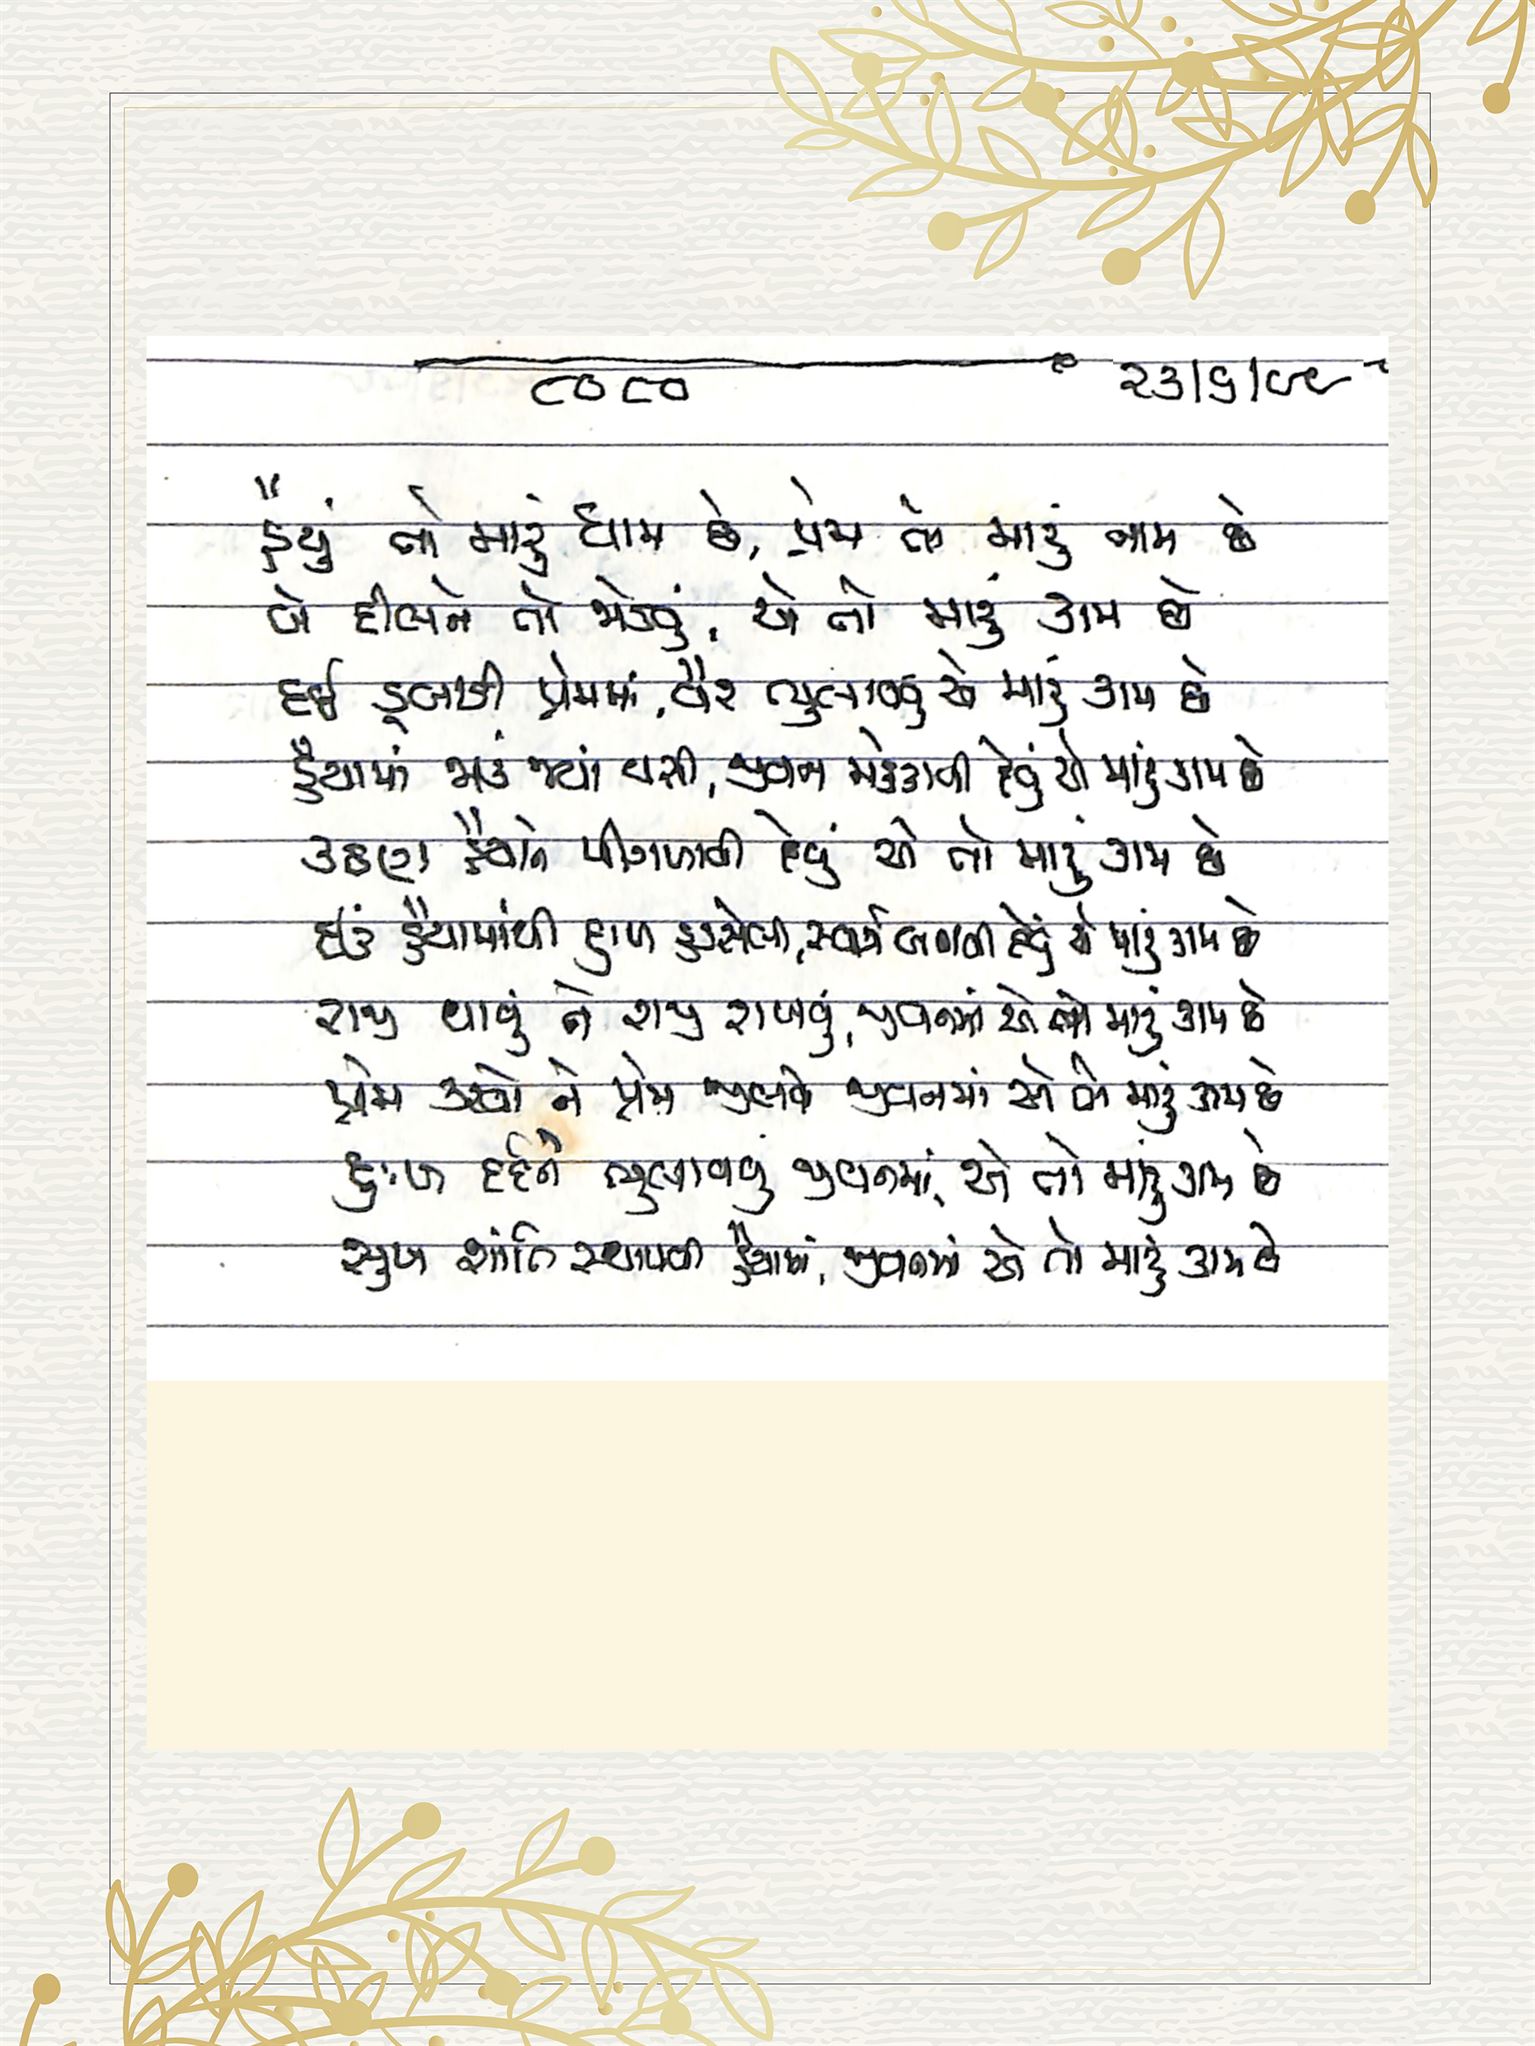 ૮૦૮૦
૨૩/૬/૯૯
હૈયું તો મારું ધામ છે, પ્રેમ તો મારું નામ છે
બે દીલને તો જોડવું, એ તો મારું કામ છે
દર્દ પ્રેમમાં, વૈર ભુલાવવું એ મારું કામ છે
હૈયામાં જાઉં જ્યાં વસી, જીવન મહેકાવી દેવું એ મારું કામ છે
કઠણ હૈયાને પીગળાવી દેવું એ તો મારું કામ છે
હૈયામાંથી દુઃખ હડસેલી, સ્વર્ગ બનાવી દેવું એ મારું કામ છે
રાજી થાવું ને રાજી રાખવું, જીવનમાં એ તો મારું કામ છે
પ્રેમ કરવો ને પ્રેમ જીવનમાં એ તો મારું કામ છે
દુઃખ દર્દને ભુલાવવું જીવનમાં, એ તો મારું કામ છે
સુખ શાંતિ સ્થાપવી હૈયામાં, જીવનમાં એ તો મારું કામ છે